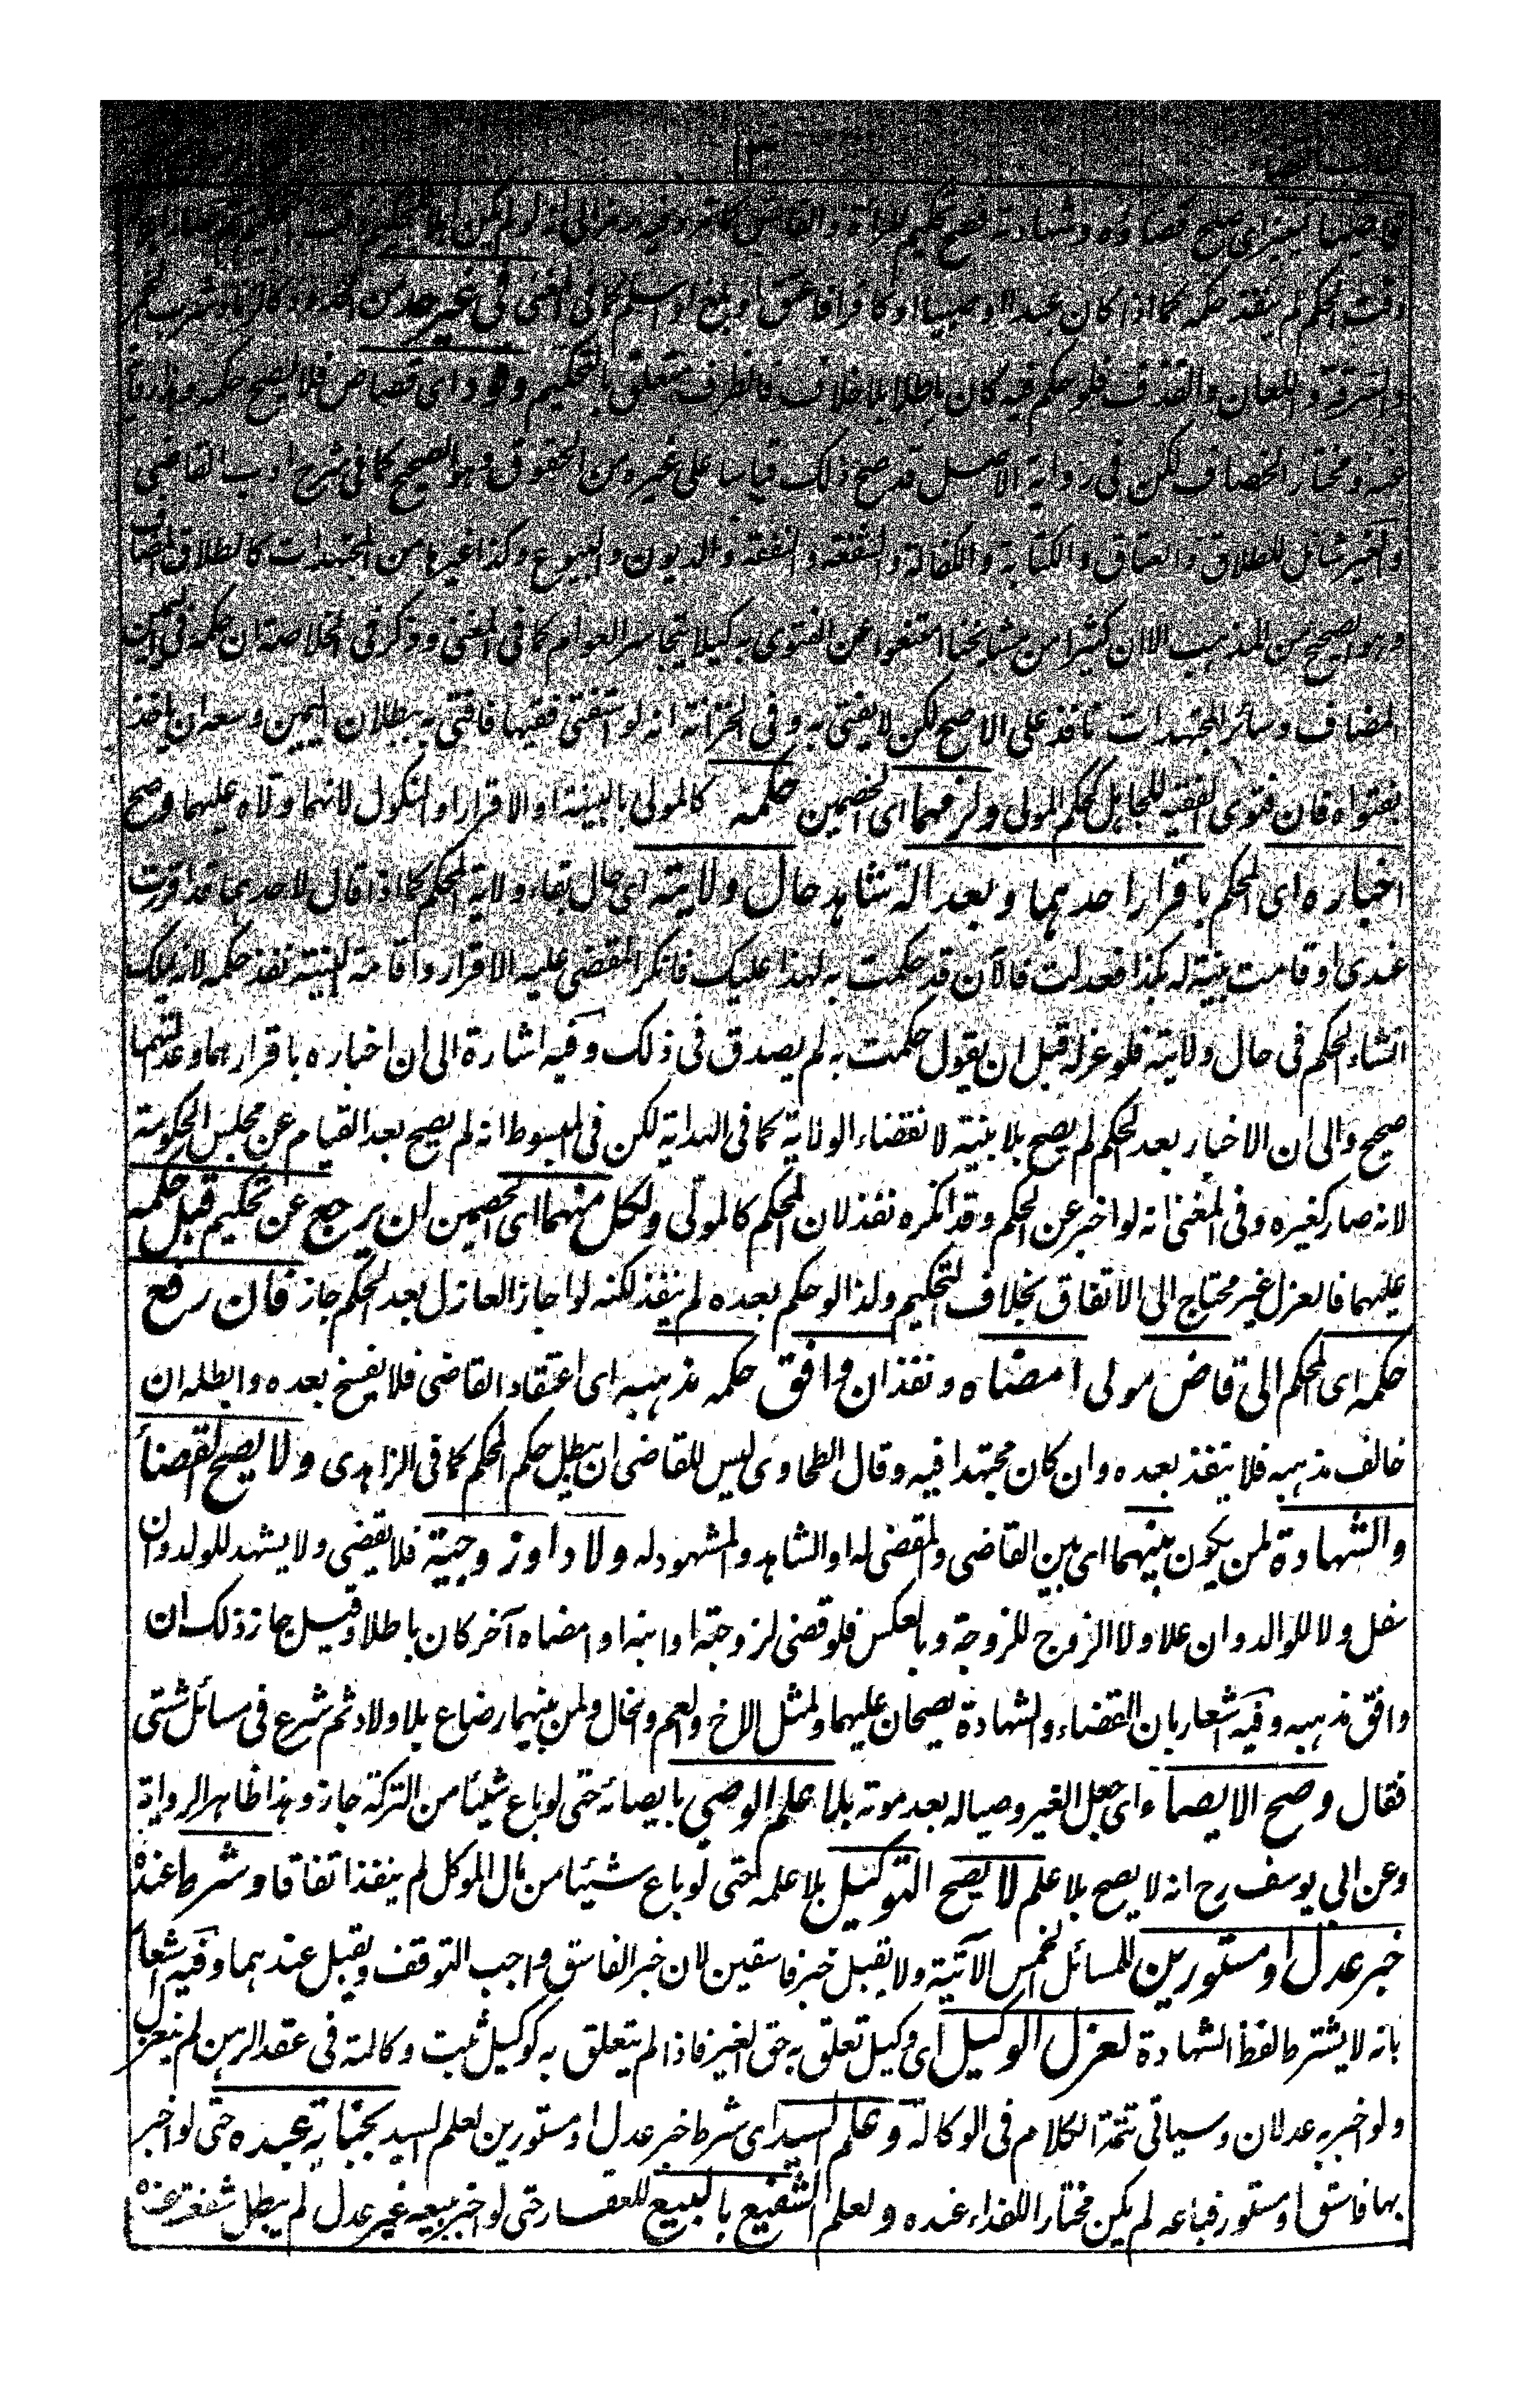 قاضيا يعنى صلح قضاؤه وشهادته فصح تحكيم المرأة والفاسق كما مر وفيه رمز الى انه لو لم يكن اهلا للتحكيم وقت التحكيم ثم صار اهلا
وقت الحكم لم ينفذ حكمه كما اذا كان عبدا او صبيا او كافرا فاعتق او بلغ او اسلم كما فى المغنى فى غير حد من الحدود كالزنا وشرب الخمر
والسرقة واللعان والقذف فلو حكم فيه كان باطلا بلا خلاف فالظرف متعلق بالتحكيم وقود اى قصاص فلا يصح حكمه
عنه ومختار الخصاف لكن فى رواية الاصل قد صح ذلك قياسا على غيره من الحقوق وهو الصحيح كما فى شرح ادب القاضى
والغير شامل للطلاق والعتاق والكتابة والكفالة والشفعة والنفقة والديون والبيوع وكذا غيرها من المجتهدات كالطلاق المضاف
وهو الصحيح من المذهب الا ان كثيرا من مشايخنا امتنعوا عن الفتوى به كيلا يتجاسر العوام كما فى المغنى وذكر فى الخلاصة ان حكمه فى اليمين
المضاف وسائر المجتهدات نافذ على الاصح لكن لا يفتى به وفى الخزانة انه لو استفتى فقيها فافتى به ببطلان اليمين وسعه ان ياخذ
بفتواه فان فتوى الفقيه للجاهل كحكم المولى ولزمهما اى الخصمين حكمه كالمولى بالبينة او الاقرار او النكول لانهما ولاه عليهما وصح
اخباره اى المحكم باقرار احدهما وبعدالة شاهد حال ولايته اى حال بقاء ولاية المحكم كما اذا قال لاحدهما قد اقررت
عندى او قامت بينة له بكذا فعدلت فالآن قد حكمت به لهذا عليك فانكر المقضى عليه الاقرار واقامة البينة نفذ حكمه لانه يملك
انشاء الحكم فى حال ولايته فلو عزله قبل ان يقول حكمت به لم يصدق فى ذلك وفيه اشارة الى ان اخباره باقرارهما وعدالتهما
صحيح والى ان الاخبار بعد الحكم لم يصح بلا بينة لانقضاء الولاية كما فى الهداية لكن فى المبسوط انه لم يصح بعد القيام عن مجلس الحكومة
لانه صار كغيره وفى المغنى انه لو اخبر عن الحكم وقد انكره نفذ لان المحكم كالمولى ولكل منهما اى الخصمين ان يرجع عن تحكيم قبل حكمه
عليهما فالعزل غير محتاج الى الاتفاق بخلاف التحكيم ولذا لو حكم بعده لم ينفذ لكنه لو اجاز العازل بعد الحكم جاز فان رفع
حكمه اى المحكم الى قاض مولى امضاه ونفذ ان وافق حكمه مذهبه اى اعتقاد القاضى فلا يفسخ بعده وابطله ان
خالف مذهبه فلا ينفذ بعده وان كان مجتهدا فيه وقال الطحاوى ليس للقاضى ان يبطل حكم المحكم كما فى الزاهدى ولا يصح القضأ
والشهادة لمن يكون بينهما اى بين القاضى والمقضى له او الشاهد والمشهود له ولاد او زوجية فلا يقضى ولا يشهد للولد وان
سفل ولا للوالد وان علا ولا الزوج للزوجة وبالعكس فلو قضى لزوجته او ابنه او امضاه آخر كان باطلا وقيل جاز ذلك ان
وافق مذهبه وفيه اشعار بان القضاء والشهادة يصحان عليهما ولمثل الاخ والعم والخال ولمن بينهما رضاع بلا ولاد ثم شرع فى مسائل شتى
فقال وصح الايصاء اى جعل الغير وصيا له بعد موته بلا علم الوصى بايصائه حتى لو باع شيئا من التركة جاز وهذا ظاهر الرواية
وعن ابى يوسف رح انه لا يصح بلا علم لا يصح التوكيل بلا علمه حتى لو باع شيئا من مال الموكل لم ينفذ اتفاقا وشرط عنده
خبر عدل او مستورين للمسائل الخمس الآتية ولا يقبل خبر فاسقين لان خبر الفاسق واجب التوقف ويقبل عندهما وفيه اشعار
بانه لا يشترط لفظ الشهادة لعزل الوكيل اى وكيل تعلق به حق الغير فاذا لم يتعلق به كوكيل ثبت وكالته فى عقد الرهن لم ينعزل
ولو اخبر به عدلان وسياتى تتمة الكلام فى الوكالة وعلم السيد اى شرط خبر عدل او مستورين لعلم السيد بجناية عبده حتى لو اخبر
بها فاسق او مستور فباعه لم يكن مختارا للفداء عنده ولعلم الشفيع بالبيع للعقار حتى لو اخبر ببيعه غير عدل لم يبطل شفعته عنده